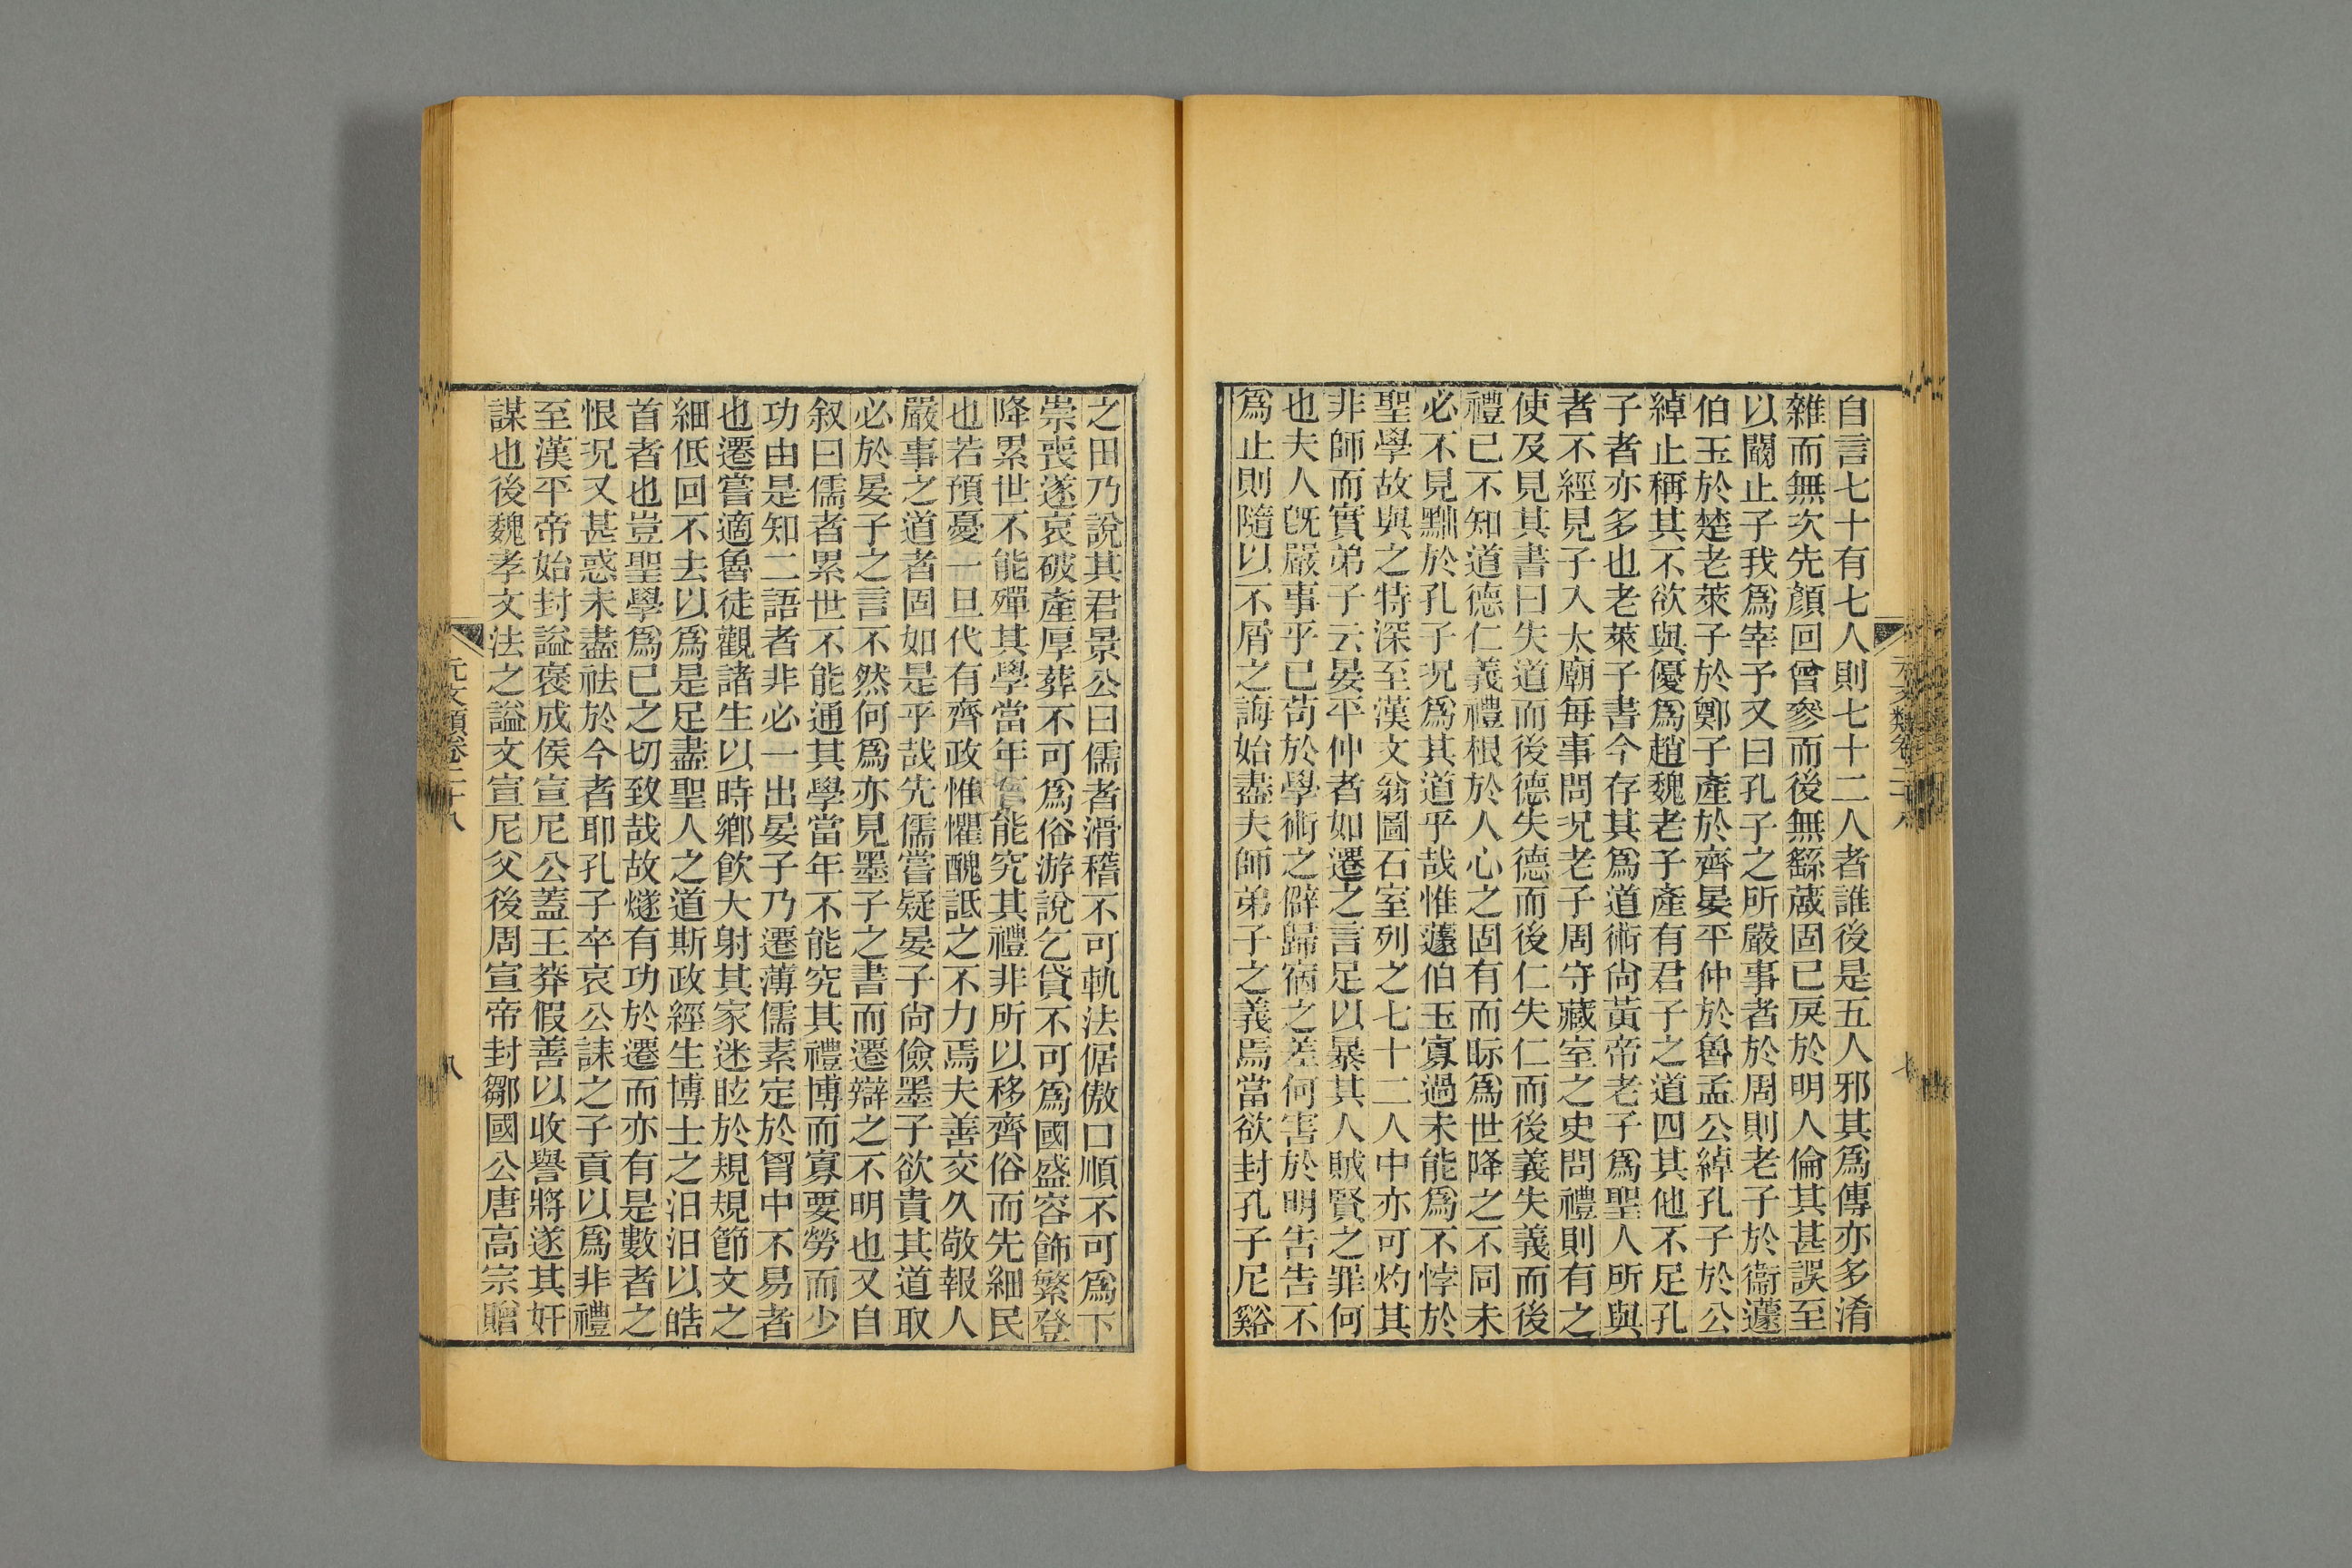 自言七十有七人則七十二人者誰後是五人邪其爲傳亦多淆
雜而無次先顏回曾參而後無繇蒧固已戾於明人倫其甚誤至
以闞止子我爲宰予又曰孔子之所嚴事者於周則老子於衞蘧
伯玉於楚老萊子於鄭子產於齊晏平仲於魯孟公綽孔子於公
綽止稱其不欲與優爲趙魏老子產有君子之道四其他不足孔
子者亦多也老萊子書今存其爲道術尙黃帝老子爲聖人所與
者不經見子入太廟每事問況老子周守藏室之史問禮則有之
使及見其書曰失道而後德失德而後仁失仁而後義失義而後
禮已不知道德仁義禮根於人心之固有而眎爲世降之不同未
必不見黜於孔子況爲其道乎哉惟蘧伯玉寡過未能爲不悖於
聖學故與之特深至漢文翁圖石室列之七十二人中亦可灼其
非師而實弟子云晏平仲者如遷之言足以暴其人賊賢之罪何
也夫人旣嚴事乎已苟於學術之僻歸宿之差何害於明告告不
爲止則隨以不屑之誨始盡夫師弟子之義焉當欲封孔子尼谿
元文類卷二十八
七
之田乃說其君景公曰儒者滑稽不可軌法倨傲口順不可爲下
崇喪遂哀破產厚葬不可爲俗游說乞貸不可爲國盛容飾繁登
降累世不能殫其學當年能究其禮非所以移齊俗而先細民
也若預憂一旦代有齊政惟懼醜詆之不力焉夫善交久敬報人
嚴事之道者固如是乎哉先儒嘗疑晏子尙儉墨子欲貴其道取
必於晏子之言不然何爲亦見墨子之書而遷辯之不明也又自
叙曰儒者累世不能通其學當年不能究其禮博而寡要勞而少
功由是知二語者非必一出晏子乃遷薄儒素定於胷中不易者
也遷嘗適魯徒觀諸生以時鄉飲大射其家迷眩於規規節文之
細低回不去以爲是足盡聖人之道斯政經生博士之汨汨以皓
首者也豈聖學爲已之切致哉故燧有功於遷而亦有是數者之
恨況又甚惑未盡祛於今者耶孔子卒哀公誄之子貢以爲非禮
至漢平帝始封謚褒成侯宣尼公蓋王莽假善以收譽將遂其奸
謀也後魏孝文法之謚文宣尼父後周宣帝封鄒國公唐高宗贈
元文類卷二十八
八